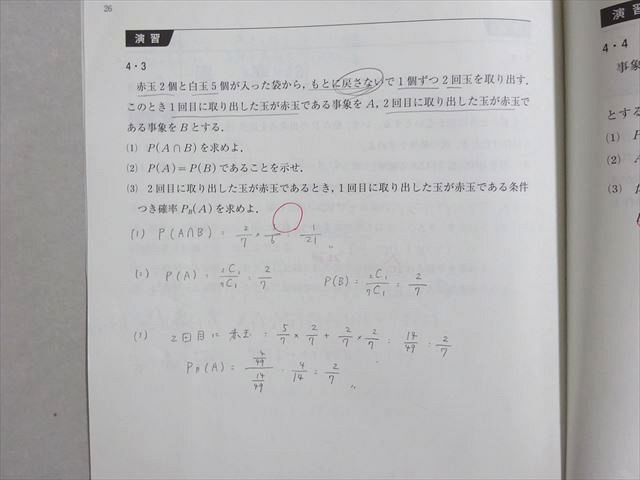 26
演習
4・3
赤玉2個と白玉5個が入った袋から，もとに戻さないで1個ずつ2回玉を取り出す．
このとき1回目に取り出した玉が赤玉である事象をA，2回目に取り出した玉が赤玉で
ある事象をBとする．
(1) P(A∩B)を求めよ．
(2) P(A)=P(B)であることを示せ．
(3) 2回目に取り出した玉が赤玉であるとき，1回目に取り出した玉が赤玉である条件
つき確率 P_B(A)を求めよ．
(1) P(A∩B) = 2/7 × 1/6 = 1/21 〃
(2) P(A) = ₂C₁/₇C₁ = 2/7 P(B) = ₂C₁/₇C₁ = 2/7
(3) 2回目に赤玉 = 5/7 × 2/7 + 2/7 × 2/7 = 14/49 = 2/7
P_B(A) = (4/49)/(14/49) = 4/14 = 2/7 〃
演習
4・4
事象
とする
(1) P
(2) A
(3)